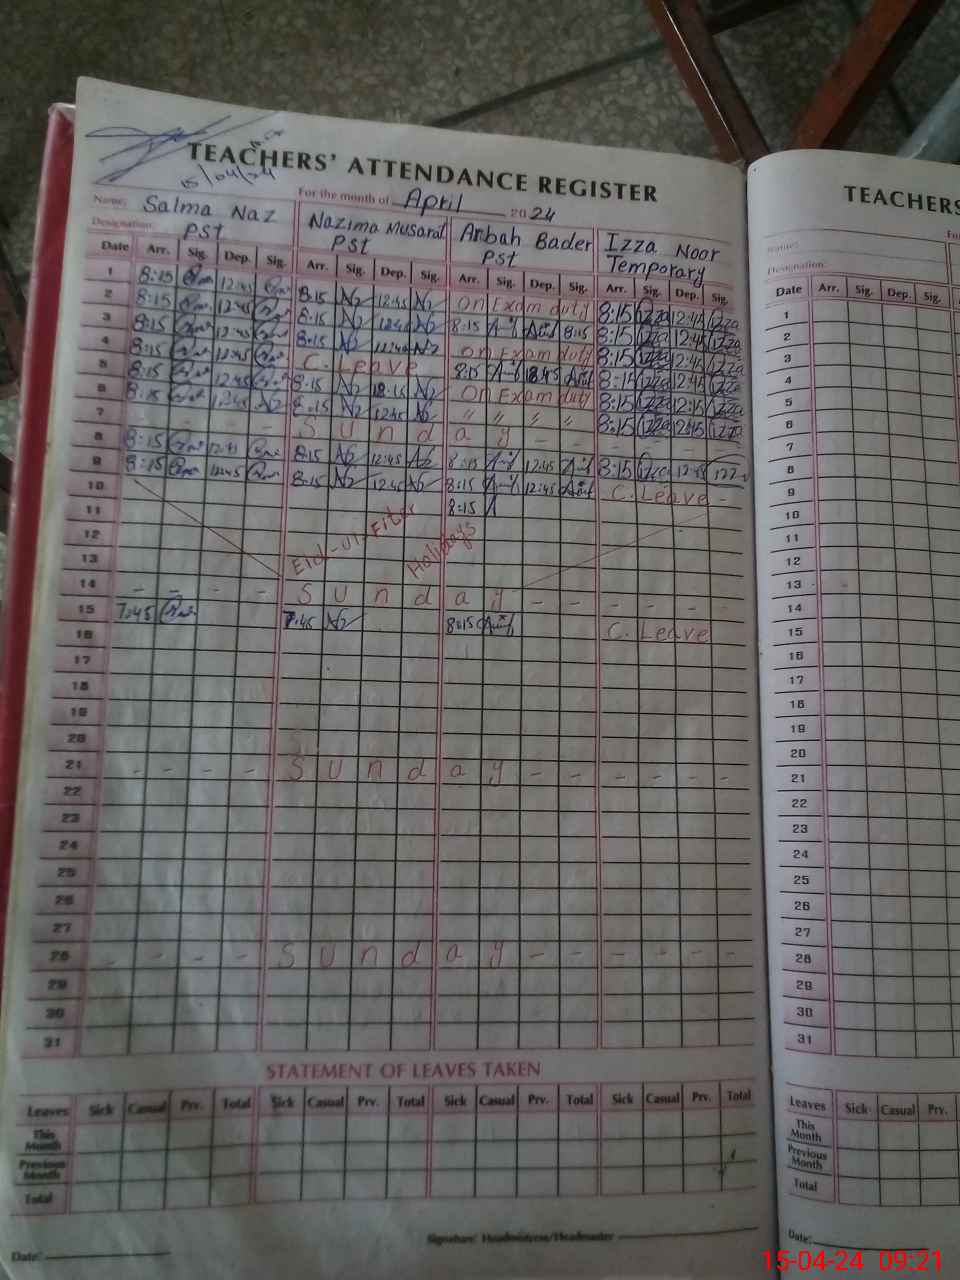 TEACHERS' ATTENDANCE REGISTER
15/04/24
For the month of April 2024
Name: Salma Naz Nazima Musarat Arbah Bader Izza Noor
Designation: PST PST PST Temporary
Date Arr. Sig. Dep. Sig. Arr. Sig. Dep. Sig. Arr. Sig. Dep. Sig. Arr. Sig. Dep. Sig.
1 8:15 12:45 8:15 12:45 On Exam duty 8:15 Izza 12:45 Izza
2 8:15 12:45 8:15 12:45 8:15 8:15 8:15 Izza 12:45 Izza
3 8:15 12:45 8:15 12:40 On Exam duty 8:15 Izza 12:45 Izza
4 8:15 12:45 C. Leave 8:15 8:15 Izza 12:45 Izza
5 8:15 12:45 8:15 On Exam duty 8:15 Izza 12:15 Izza
6 8:15 12:45 8:15 12:45 " " " " 8:15 Izza 12:45 Izza
7 - - - - S u n d a y - - - - - -
8 8:15 12:45 8:15 12:45 8:15 12:45 8:15 Izza 12:45
9 8:15 12:45 8:15 12:45 8:15 12:45 C. Leave -
10 8:15
11
12 Eid-ul-Fiter Holidays
13
14 - - - - S u n d a y - - - - - -
15 7:45 7:45 8:15 C. Leave
16
17
18
19
20
21 - - - - S u n d a y - - - - - -
22
23
24
25
26
27
28 - - - - S u n d a y - - - - - -
29
30
31
STATEMENT OF LEAVES TAKEN
Leaves Sick Casual Prv. Total Sick Casual Prv. Total Sick Casual Prv. Total Sick Casual Prv. Total
This Month
Previous Month
Total
Signature: Headmistress/Headmaster
Date:
TEACHERS
Name:
Designation:
Date Arr. Sig. Dep. Sig.
1
2
3
4
5
6
7
8
9
10
11
12
13
14
15
16
17
18
19
20
21
22
23
24
25
26
27
28
29
30
31
Leaves Sick Casual Prv.
This Month
Previous Month
Total
Date:
15-04-24 09:21